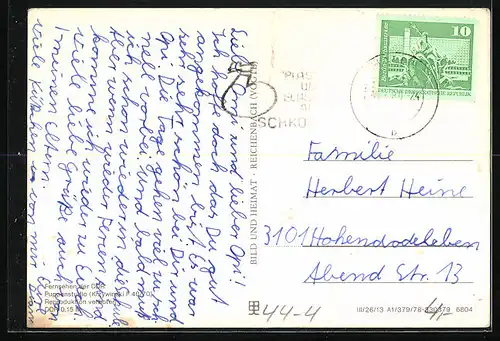 Liebe Omi und lieber Opi!
Ich hoffe doch das Du gut
angekommen bist. Es war
sehr schön bei Dir und
Opi. Die Tage gehen viel zu sch-
nell vorbei und bald muß
ich schon wieder in die Schule
Aber wenn wieder Ferien sind
komme ich wieder zu Euch
Viele liebe Grüße auch von
meinen Eltern.
Viele von mir
Fernsehen der DDR
Puppenstudio
Reproduktion verboten
DDR 0,15 M
BILD UND HEIMAT · REICHENBACH (VOGTL)
SCHKO
10
DEUTSCHE DEMOKRATISCHE REPUBLIK
Familie
Herbert Heine
3101 Hohendodeleben
Abend Str. 13
44-4
4,-
III/26/13 A1/379/78 330379 6804